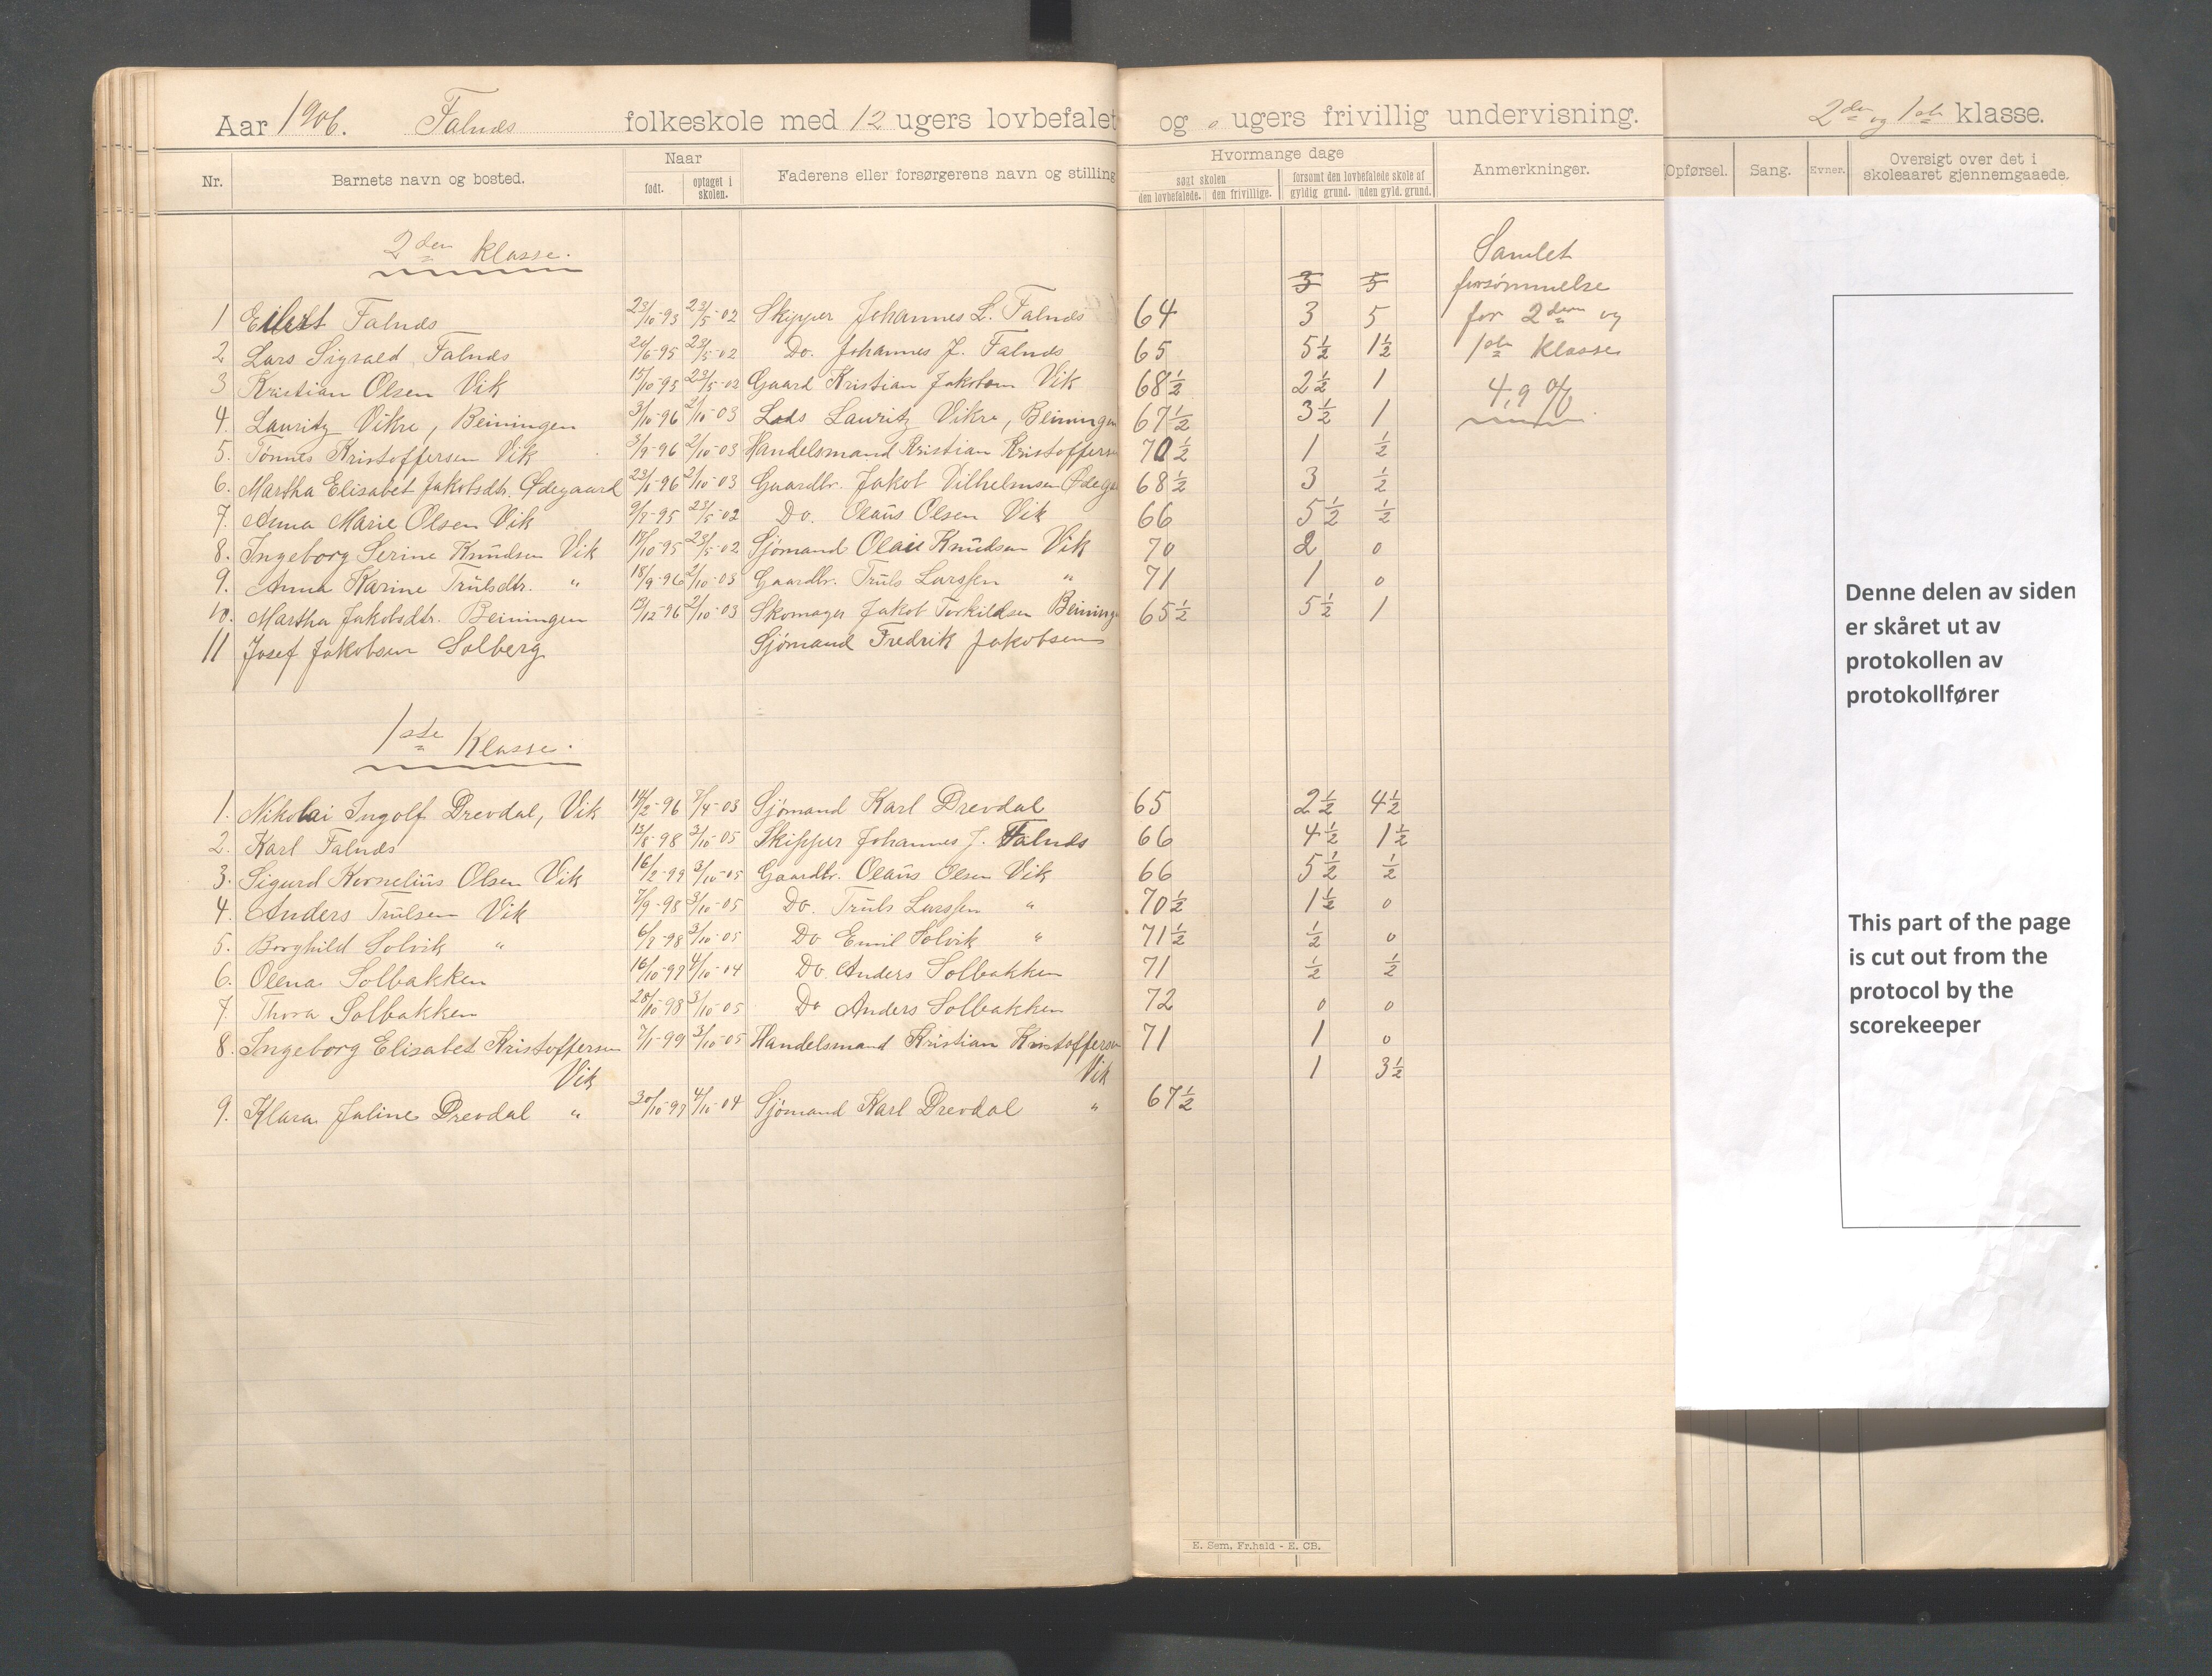 Aar 1906. Falnes folkeskole med 12 ugers lovbefalet og 0 ugers frivillig undervisning. 2den og 1ste klasse.
Nr. Barnets navn og bosted. Naar født. optaget i skolen. Faderens eller forsørgerens navn og stilling Hvormange dage søgt skolen den lovbefalede. den frivillige. forsømt den lovbefalede skole af gyldig grund. uden gyld. grund. Anmerkninger. Opførsel. Sang. Evner. Oversigt over det i skoleaaret gjennemgaaede.
2den klasse. Samlet
3 5 forsømmelse
1 Eilert Falnes 23/10-93 23/5-02 Skipper Johannes L. Falnes 64 3 5 for 2den og
2 Lars Sigvald Falnes 26/6-95 23/5-02 Do. Johannes J. Falnes 65 5½ 1½ 1ste klasse
3 Kristian Olsen Vik 15/10-95 23/5-02 Gaard Kristian Jakobsen Vik 68½ 2½ 1 4,9 %
4. Lauritz Vikre, Beiningen 3/10-96 2/10-03 Lods Lauritz Vikre, Beiningen 67½ 3½ 1
5. Tønnes Kristoffersen Vik 3/9-96 2/10-03 Handelsmand Kristian Kristoffersen 70½ 1 ½
6. Martha Elisabet Jakobsdtr. Ødegaard 23/1-96 2/10-03 Gaardbr. Jakob Vilhelmsen Ødega 68½ 3 ½
7. Anna Marie Olsen Vik 9/8-95 23/5-02 Do. Olaus Olsen Vik 66 5½ ½
8. Ingeborg Serine Knudsen Vik 19/10-95 23/5-02 Sjømand Olai Knudsen Vik 70 2 0
9. Anna Karine Trulsdtr. " 18/9-96 2/10-03 Gaardbr. Truls Larssen " 71 1 0
10. Martha Jakobsdtr. Beiningen 13/12-96 2/10-03 Skomager Jakob Torkildsen Beininge 65½ 5½ 1
11 Josef Jakobsen Solberg Sjømand Fredrik Jakobsen
1ste Klasse.
1. Nikolai Ingolf Drevdal, Vik 14/2-96 7/4-03 Sjømand Karl Drevdal 65 2½ 4½
2. Karl Falnes 13/8-98 3/10-05 Skipper Johannes J. Falnes 66 4½ 1½
3. Sigurd Kornelius Olsen Vik 16/2-99 3/10-05 Gaardbr. Olaus Olsen Vik 66 5½ ½
4. Anders Trulsen Vik 7/9-98 3/10-05 Do. Truls Larssen " 70½ 1½ 0
5. Borghild Solvik " 6/8-98 3/10-05 Do Emil Solvik " 71½ ½ 0
6. Olena Solbakken 16/10-97 4/10-04 Do. Anders Solbakken 71 ½ ½
7. Thora Solbakken 28/10-98 3/10-05 Do Anders Solbakken 72 0 0
8. Ingeborg Elisabet Kristoffersen 7/1-99 3/10-05 Handelsmand Kristian Kristoffersen 71 1 0
Vik Vik 1 3½
9. Klara Jaline Drevdal " 30/10-97 4/10-04 Sjømand Karl Drevdal " 67½
E. Sem, Fr.hald - E. CB.
Denne delen av siden
er skåret ut av
protokollen av
protokollfører
This part of the page
is cut out from the
protocol by the
scorekeeper